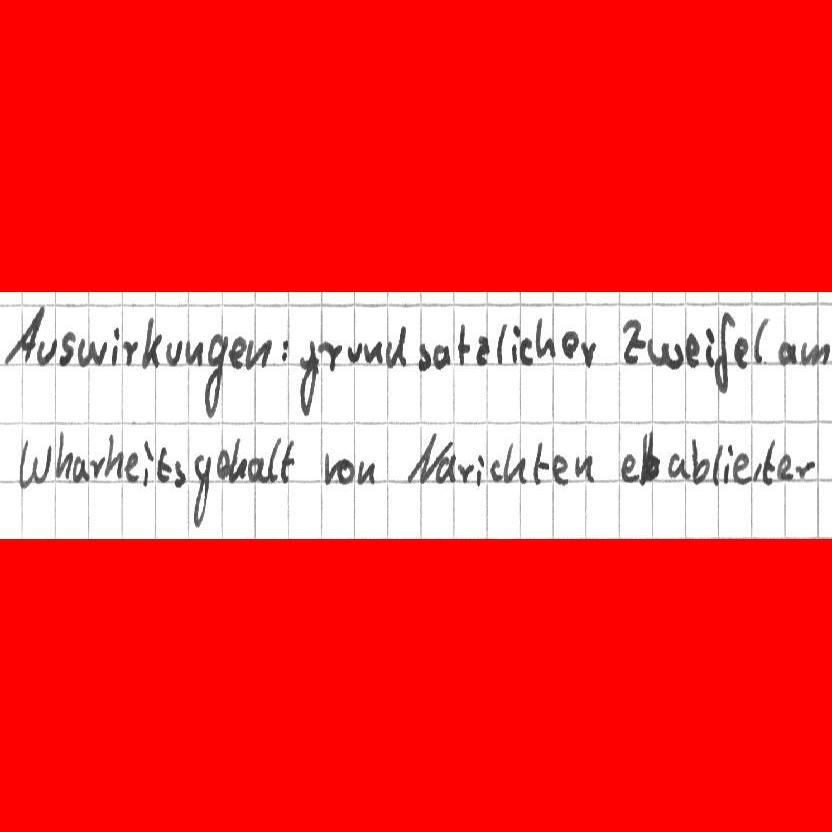 Auswirkungen: grundsatzlicher Zweifel am
Wharheitsgehalt von Narichten etablieter